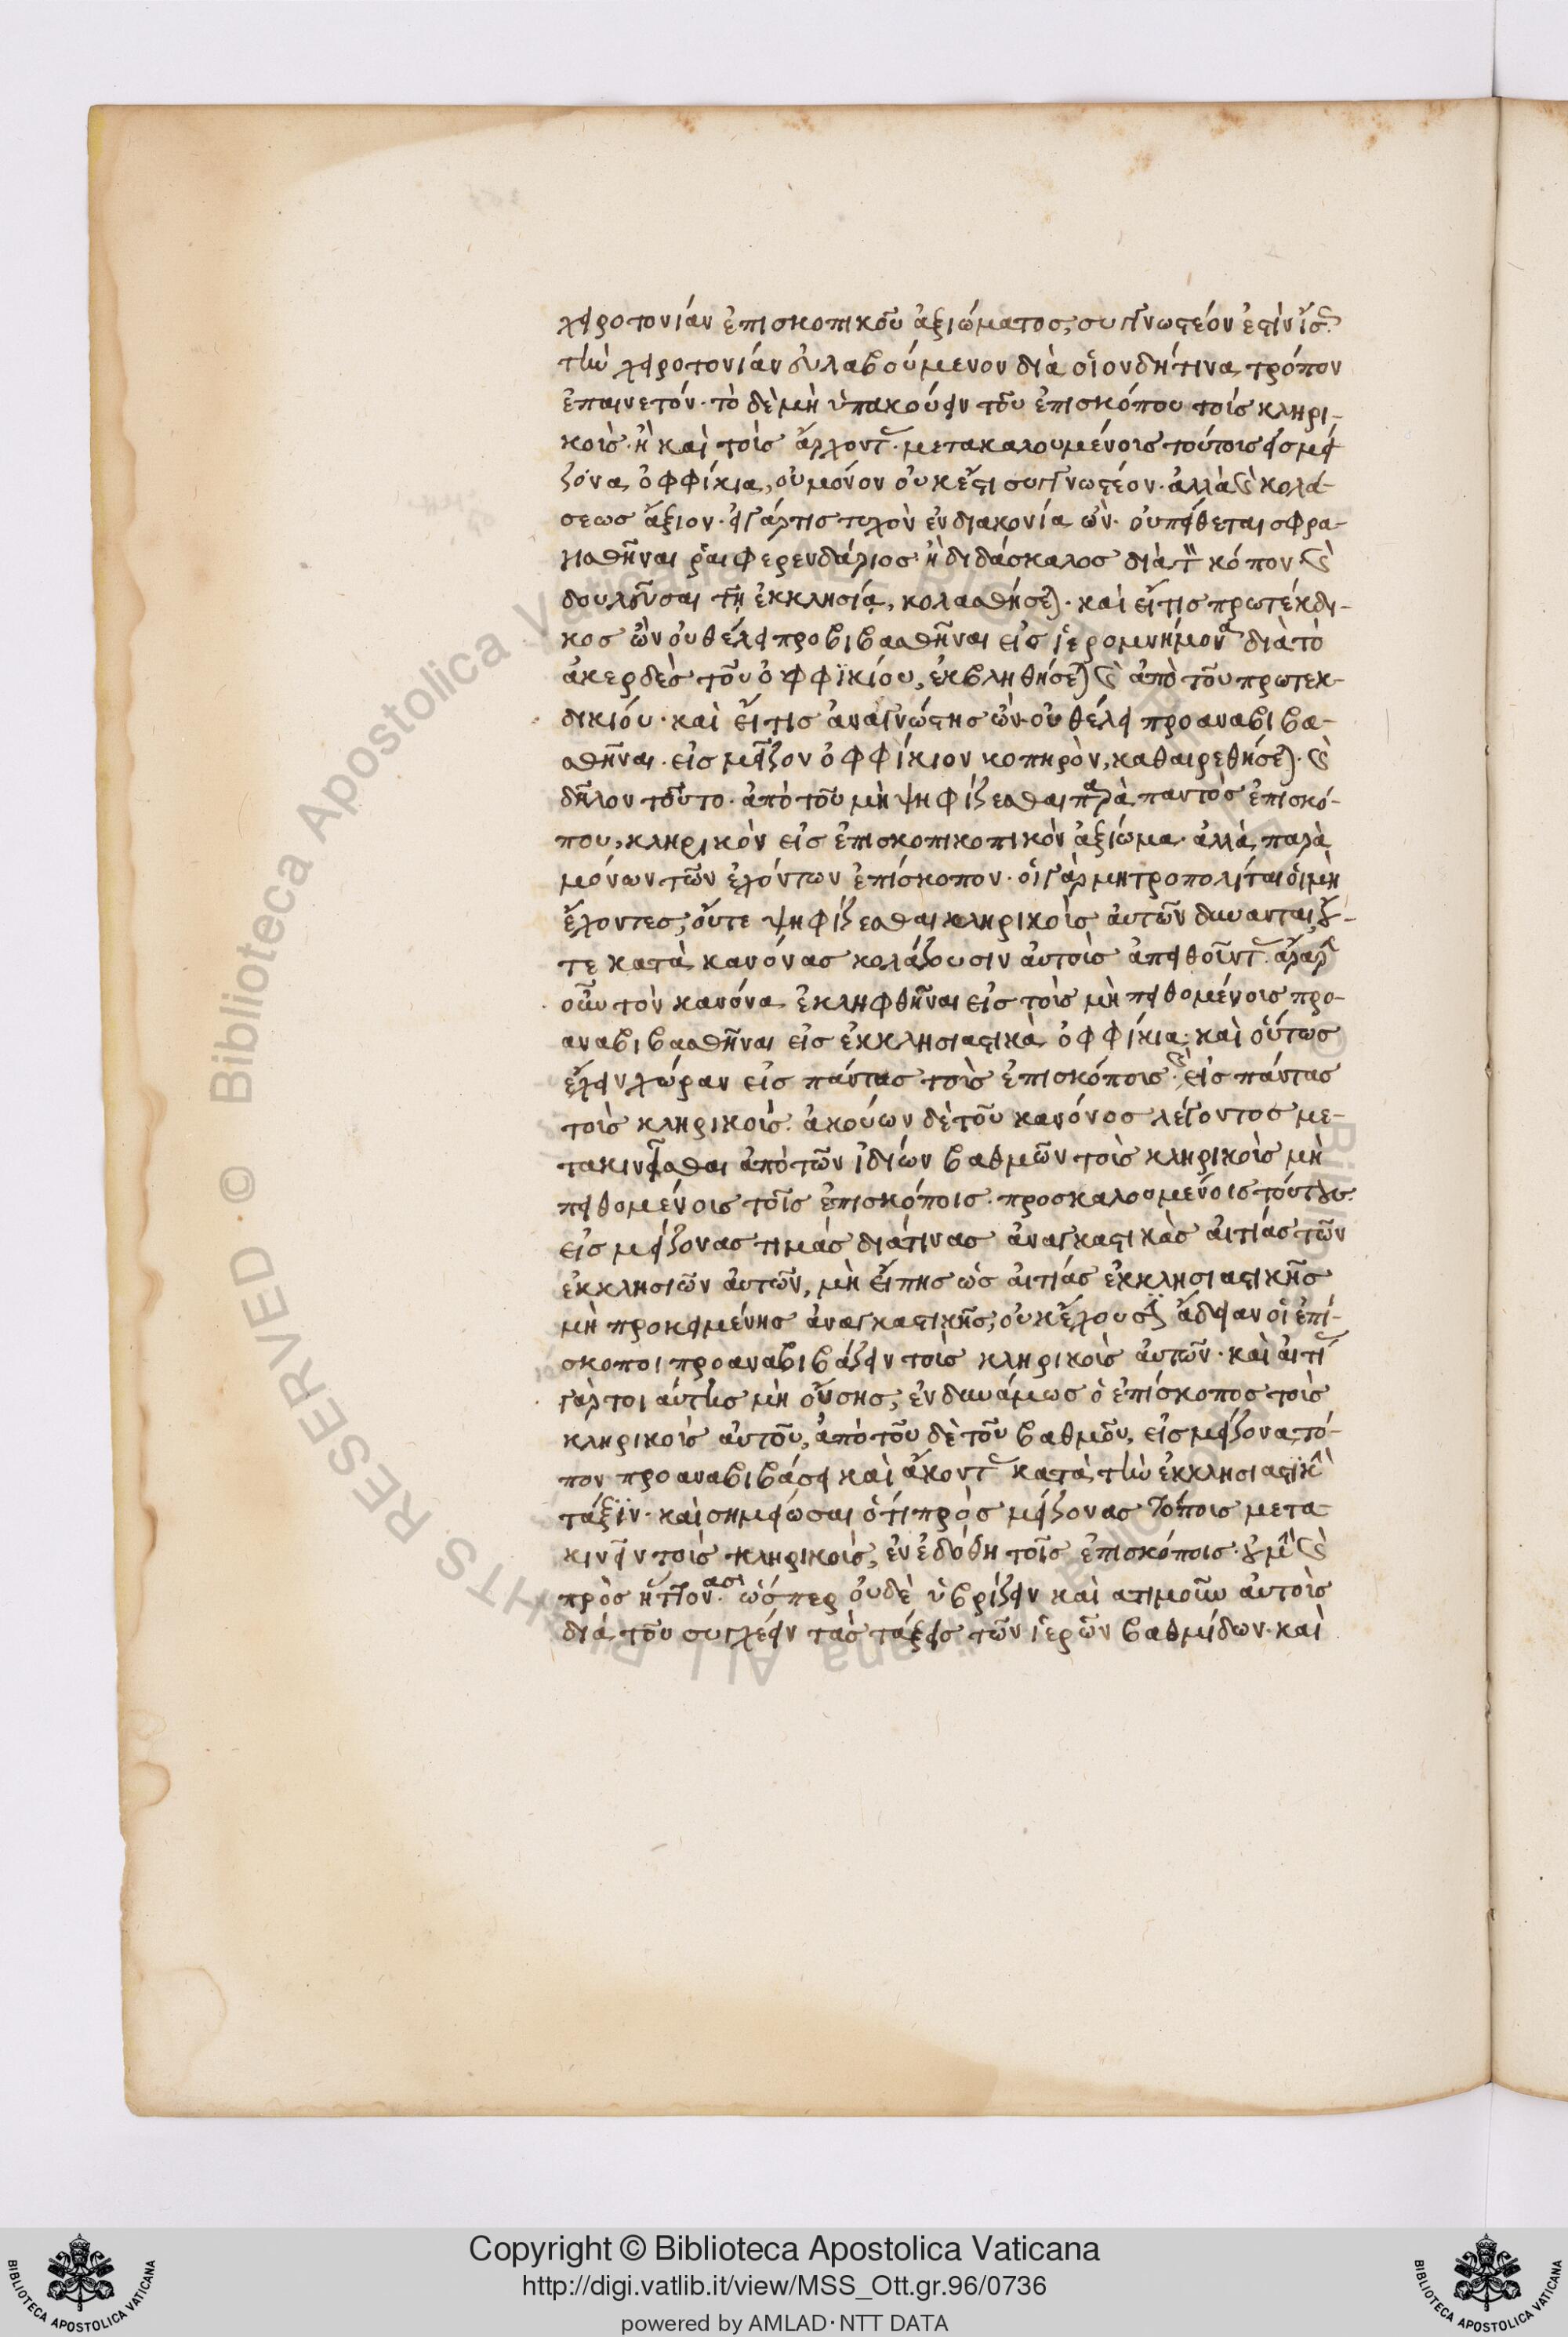 χειροτονίαν ἐπισκοπικοῦ ἀξιώματος, συγγνωστέον ἐστίν ἴσ.
τὴν χειροτονίαν εὐλαβούμενον διὰ οἱονδήτινα τρόπον
ἐπαινετόν· τὸ δὲ μὴ ὑπακούειν τοῦ ἐπισκόπου τοὺς κληρι-
κοὺς· ἢ καὶ τοὺς ἄρχοντ. μετακαλουμένους τούτους εἰς μεί
ζονα ὀφφίκια, οὐ μόνον οὐκ ἔστι συγγνωστέον· ἀλλὰ καὶ κολά-
σεως ἄξιον· εἰ γάρ τις τυχὸν ἐν διακονία ὢν· οὐ πείθεται σφρα-
γισθῆναι ῥαιφερενδάριος ἢ διδάσκαλος διὰ τὸ κόπον καὶ
δουλεῦσαι τῆ ἐκκλησία, κολασθήσεται· καὶ εἴ τις πρωτέκδι-
κος ὢν οὐ θέλει προβιβασθῆναι εἰς ἱερομνήμονα διὰ τὸ
ἀκερδὲς τοῦ ὀφφικίου, ἐκβληθήσεται καὶ ἀπὸ τοῦ πρωτεκ-
δικίου· καὶ εἴ τις ἀναγνώστης ὢν οὐ θέλει προαναβιβα-
σθῆναι εἰς μεῖζον ὀφφίκιον κοπηρὸν, καθαιρεθήσεται· καὶ
δῆλον τοῦτο· ἀπὸ τοῦ μὴ ψηφίζεσθαι παρὰ παντὸς ἐπισκό-
που, κληρικὸν εἰς ἐπισκοπικοπικὸν ἀξίωμα· ἀλλὰ παρὰ
μόνων τῶν ἐχόντων ἐπίσκοπον· οἱ γὰρ μητροπολίται οἱ μὴ
ἔχοντες, οὔτε ψηφίζεσθαι κληρικοὺς αὐτῶν δύνανται, οὔ-
τε κατὰ κανόνας κολάζουσιν αὐτοὺς ἀπειθοῦντ.
οὖν τὸν κανόνα ἐκληφθῆναι εἰς τοὺς μὴ πειθομένους προ-
αναβιβασθῆναι εἰς ἐκκλησιαστικὰ ὀφφίκια· καὶ οὕτως
ἔχειν χώραν εἰς πάντας τοὺς ἐπισκόπους· καὶ εἰς πάντας
τοὺς κληρικούς. ἀκούων δὲ τοῦ κανόνος λέγοντος με-
τακινεῖσθαι ἀπὸ τῶν ἰδίων βαθμῶν τοὺς κληρικοὺς μὴ
πειθομένους τοῖς ἐπισκόποις· προσκαλουμένοις τούτους
εἰς μείζονας τιμὰς διά τινας ἀναγκαστικὰς αἰτίας τῶν
ἐκκλησιῶν αὐτῶν, μὴ εἴπης ὡς αἰτίας ἐκκλησιαστικῆς
μὴ προκειμένης ἀναγκαστικῆς, οὐκ ἔχουσιν ἄδειαν οἱ ἐπί-
σκοποι προαναβιβάζειν τοὺς κληρικοὺς αὐτῶν· καὶ αἰτί
γάρ τοι αὐτῆς μὴ οὔσης, ἐνδυνάμως ὁ ἐπίσκοπος τοὺς
κληρικοὺς αὐτοῦ, ἀπὸ τοῦ δὲ τοῦ βαθμοῦ, εἰς μείζονα τό-
πον προαναβιβάσει καὶ ἄκοντ κατὰ τὴν ἐκκλησιαστικὴ
τάξιν· καὶ σημείωσαι ὅτι πρὸς μείζονας τόπους μετα-
κινεῖν τοὺς κληρικοὺς, ἐνεδόθη τοῖς ἐπισκόποις· οὐ μὴν καὶ
πρὸς ἥττονας· ὥσπερ οὐδὲ ὑβρίζειν καὶ ατιμοῦν αὐτοὺς
διὰ τοῦ συγχέειν τὰς τάξεις τῶν ἱερῶν βαθμίδων· καὶ
Copyright © Biblioteca Apostolica Vaticana
http://digi.vatlib.it/view/MSS_Ott.gr.96/0736
powered by AMLAD·NTT DATA